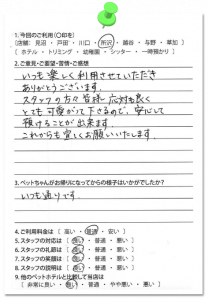 1. 今回のご利用(〇印を)
[店舗: 見沼 ・ 戸田 ・ 川口 ・ 所沢 ・ 越谷 ・ 与野 ・ 草加 ]
[ ホテル ・ トリミング ・ 幼稚園 ・ シッター ・ 一時預かり ]
2. ご意見・ご要望・苦情・ご感想
いつも楽しく利用させていただき
ありがとうございます。
スタッフの方々皆様応対も良く
とても可愛がって下さるので、安心して
預けることが出来ます。
これからも宜しくお願いいたします。
3. ペットちゃんがお帰りになってからの様子はいかがでしたか?
いつも通りです。
4. ご利用料金は [ 高い ・ 普通 ・ 安い ]
5. スタッフの対応は [ 良い ・ 普通 ・ 悪い ]
6. スタッフの礼節は [ 良い ・ 普通 ・ 悪い ]
7. スタッフの笑顔は [ 良い ・ 普通 ・ 悪い ]
8. スタッフの説明は [ 良い ・ 普通 ・ 悪い ]
9. 他のペットホテルと比較して当店は
[ 非常に良い ・ 良い ・ 普通 ・ やや悪い ・ 悪い ]